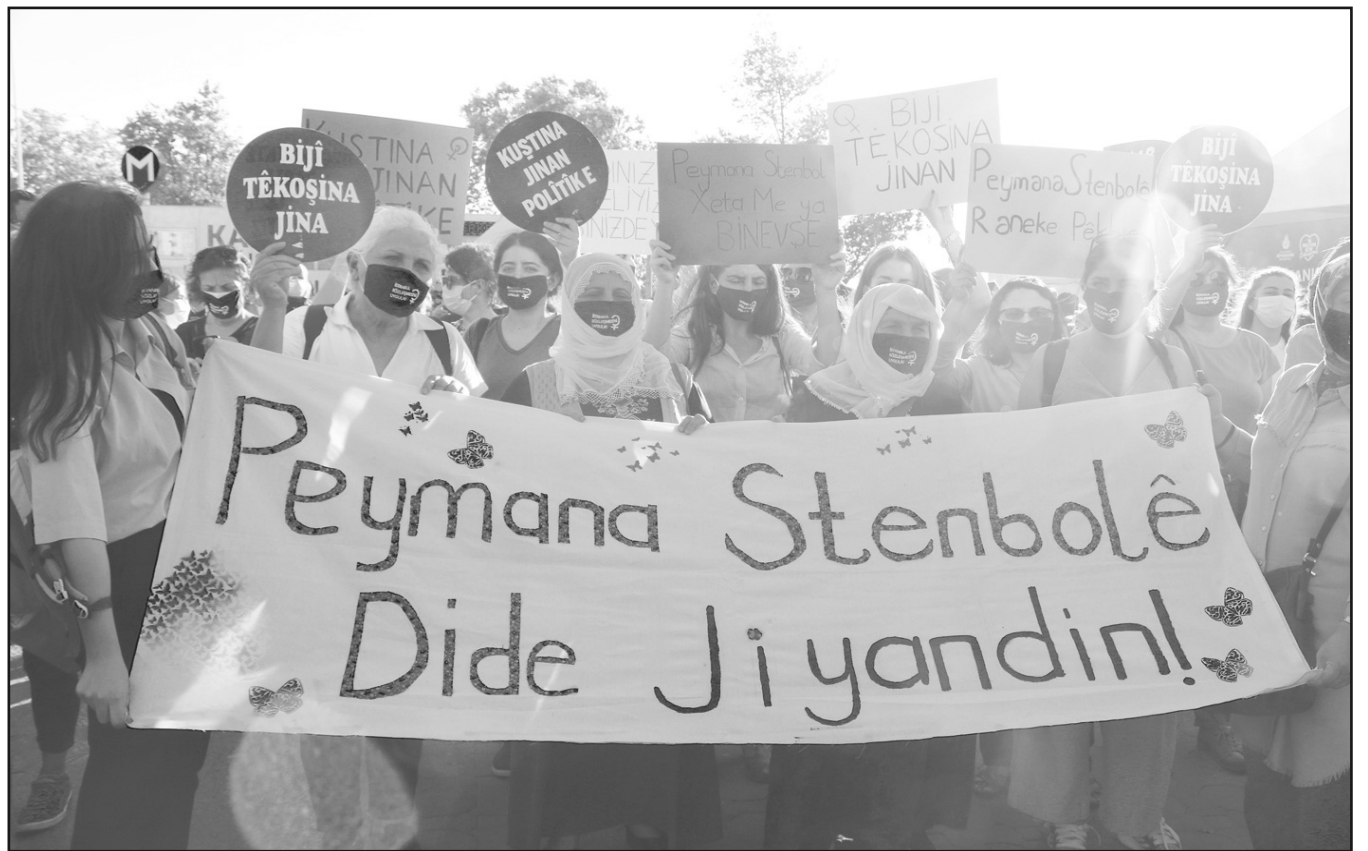 M
BIJÎ
TÊKOȘINA
JINA
KUSTINA
JINAN
KUȘTINA
JINAN
POLÎTÎK E
Peymana Stenbol
Xeta Me ya
BINEVŞE
BIJÎ
TÊKOŞINA
JINAN
Peymana Stenbolê
Raneke
BIJÎ
TÊKOȘINA
JINA
Peymana Stenbolê
Dide Jiyandin!